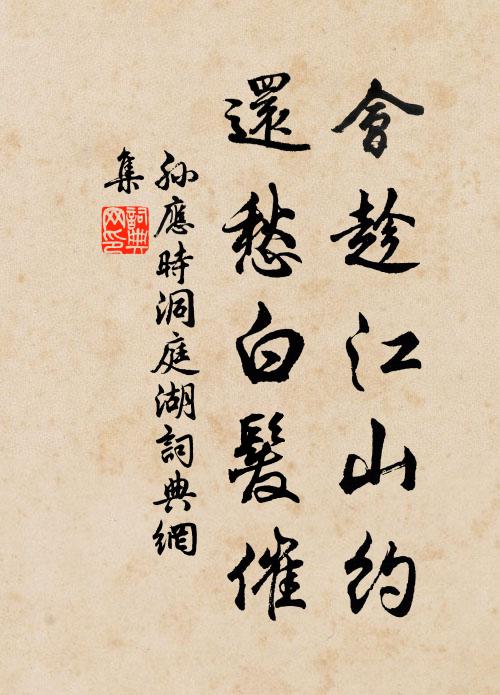 會趁江山約
還愁白髮催
孫應時洞庭湖詞典網
集
詞典網印